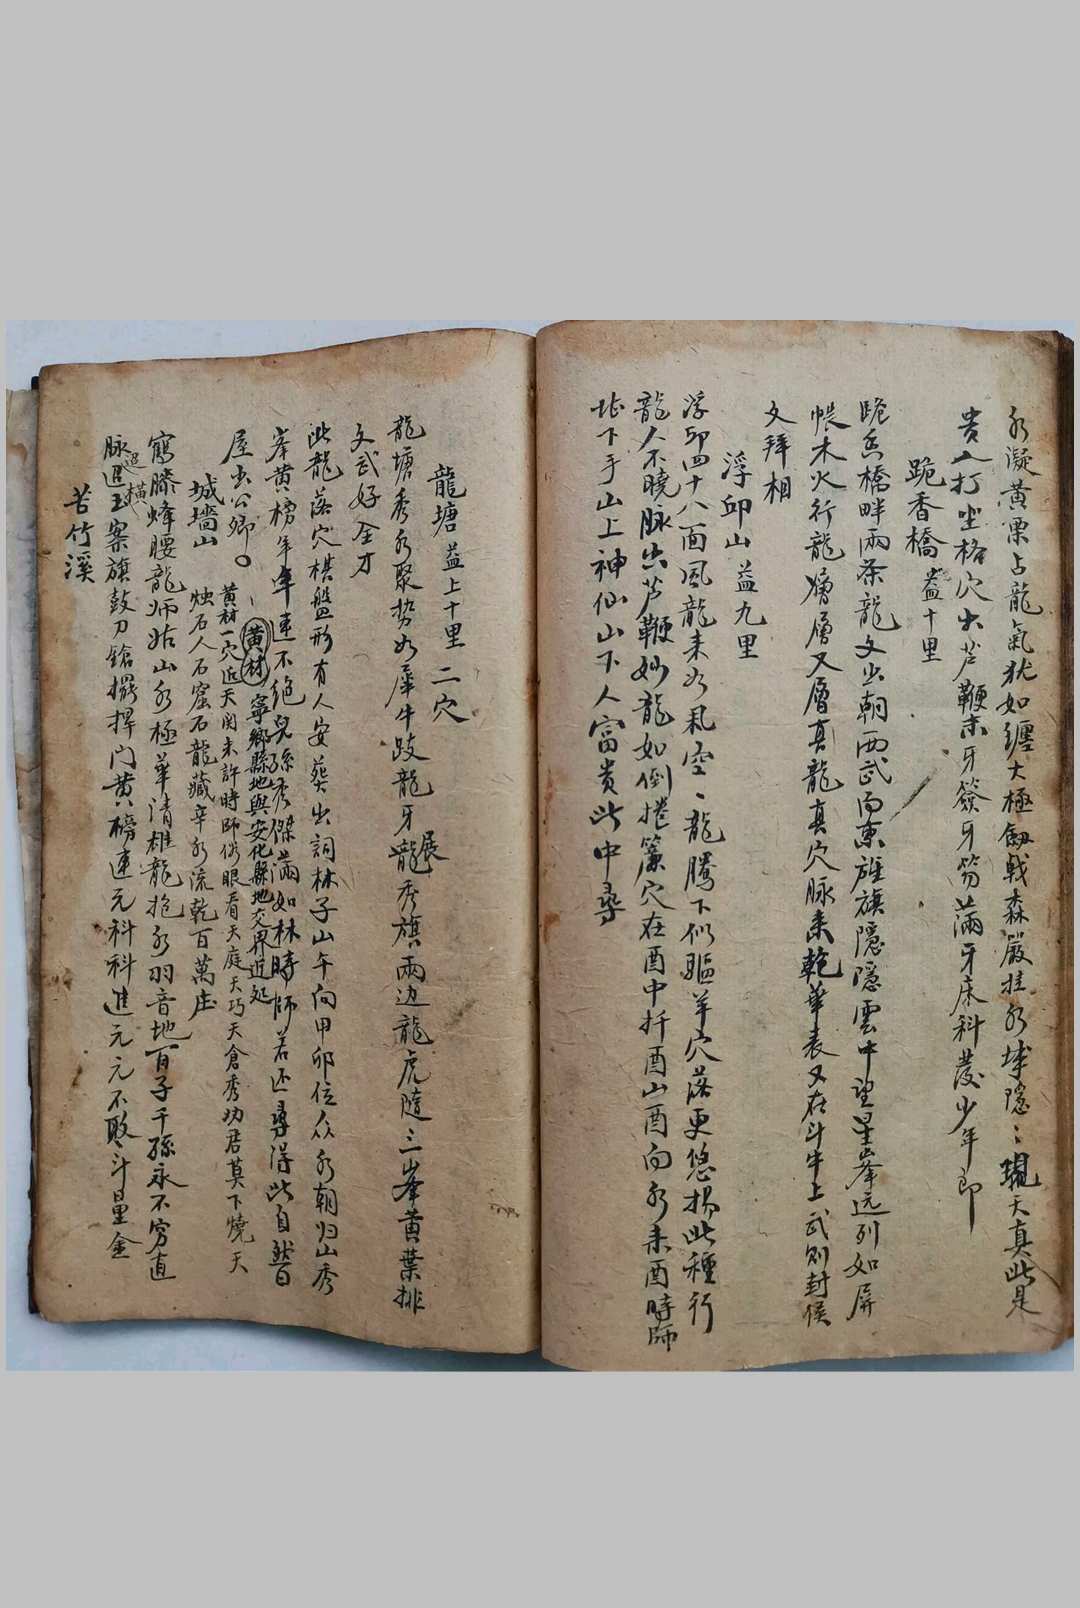 水凝黄栗占龍氣犹如纏大極劔戟森嚴挂水城隱〻現天真此是
贵人打坐格穴出芦鞭末牙簽牙笏滿牙床科發少年郎
跪香橋 益十里
跪香橋畔兩条龍文出朝西武向東旌旗隱隱雲中望星峯远列如屏
帳木火行龍層層又層真龍真穴脉来乾華表又在斗牛上武則封侯
文拜相
浮邱山 益九里
浮邱四十八面風龍来水朩空〻龍騰下似驅羊穴落更悠揚此種行
龍人不曉脉出芦鞭妙龍如倒捲簾穴在酉中扦酉山酉向水来酉時師
址下手山上神仙山下人富贵此中尋
龍塘 益上十里 二穴
龍塘秀水聚势如犀牛跂龍牙展龍秀旗兩边龍虎隨三峯黄葉排
文武好全才
此龍落穴棋盤形有人安葬出詞林子山午向甲卯位众水朝归山秀
峯黄榜年年連不絶兒孫秀傑滿如林時師若还尋得此自然百
屋出公卿〇
黄材 寧鄉縣地與安化縣地交界近处
黄材一穴近天関未許時師俗眼看天庭天巧天倉秀功君莫下燒天
烛石人石窟石龍藏辛水流乾百萬庄
城墻山
鶴膝蜂腰龍师姑山水極華清雄龍抱水羽音地百子千孫永不穷直
脉迢迢橫玉案旗鼓刀鎗擺捍门黄榜連元科科進元元不败斗量金
苦竹溪